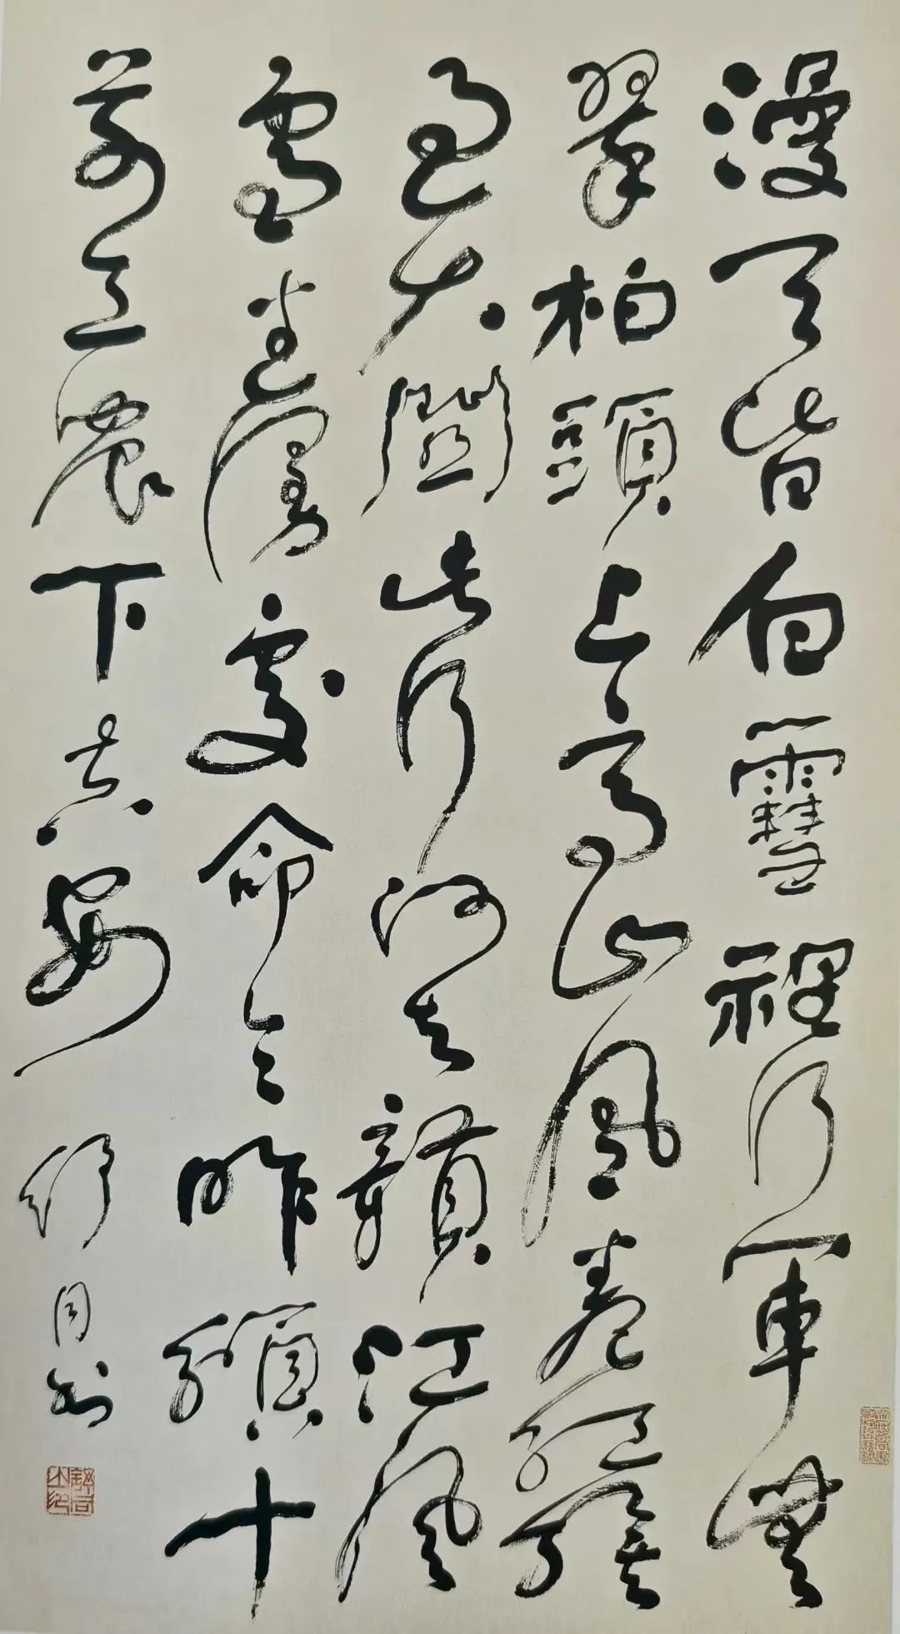 漫天皆白雪裡行軍無
翠柏頭上高山風卷紅旗
過大關此行何去贛江風
雪迷漫處命令昨頒十
萬工農下吉安
舒同书
舒同之印